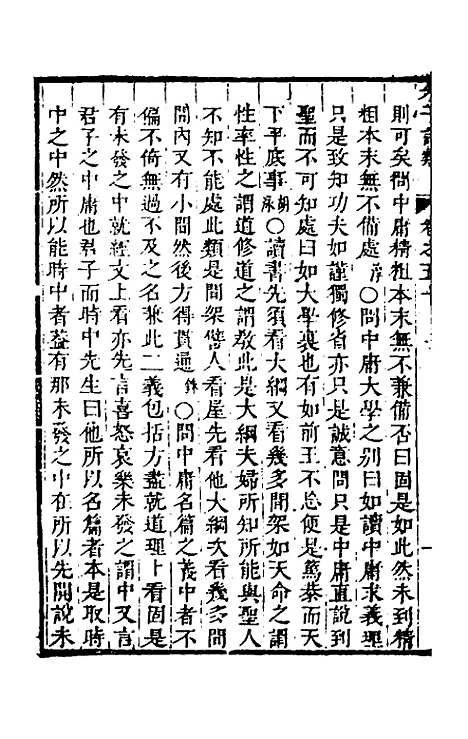 則可矣問中庸精粗本末無不兼備否曰固是如此然未到精
粗本末無不備處淳○問中庸大學之別曰如讀中庸求義理
只是致知功夫如謹獨修省亦只是誠意問只是中庸直說到
聖而不可知處曰如大學裏也有如前王不忘便是篤恭而天
下平底事胡泳○讀書先須看大綱又看幾多間架如天命之謂
性率性之謂道修道之謂敎此是大綱夫婦所知所能與聖人
不知不能處此類是間架譬人看屋先看他大綱次看幾多間
間內又有小間然後方得貫通銖○問中庸名篇之義中者不
偏不倚無過不及之名兼此二義包括方盡就道理上看固是
有未發之中就經文上看亦先言喜怒哀樂未發之謂中又言
君子之中庸也君子而時中先生曰他所以名篇者本是取時
中之中然所以能時中者葢有那未發之中在所以先開說未